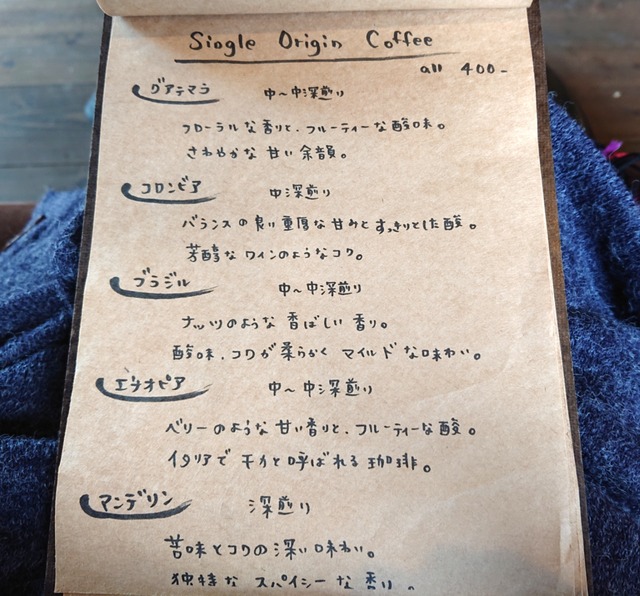 Siogle Origin Coffee
all 400-
グアテマラ 中～中深煎り
フローラルな香りと、フルーティーな酸味。
さわやかな甘い余韻。
コロンビア 中深煎り
バランスの良い重厚な甘みとすっきりとした酸。
芳醇なワインのようなコク。
ブラジル 中～中深煎り
ナッツのような香ばしい香り。
酸味、コクが柔らかくマイルドな味わい。
エチオピア 中～中深煎り
ベリーのような甘い香りと、フルーティーな酸。
イタリアでモカと呼ばれる珈琲。
マンデリン 深煎り
苦味とコクの深い味わい。
独特なスパイシーな香り。